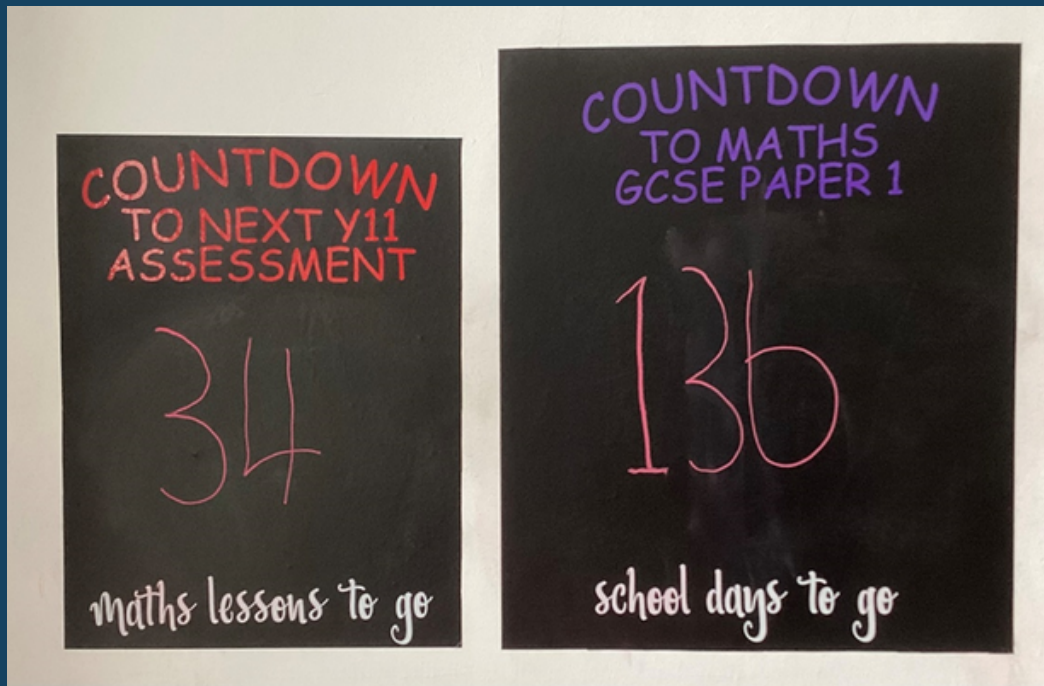 COUNTDOWN
TO NEXT Y11
ASSESSMENT
34
maths lessons to go
COUNTDOWN
TO MATHS
GCSE PAPER 1
136
school days to go